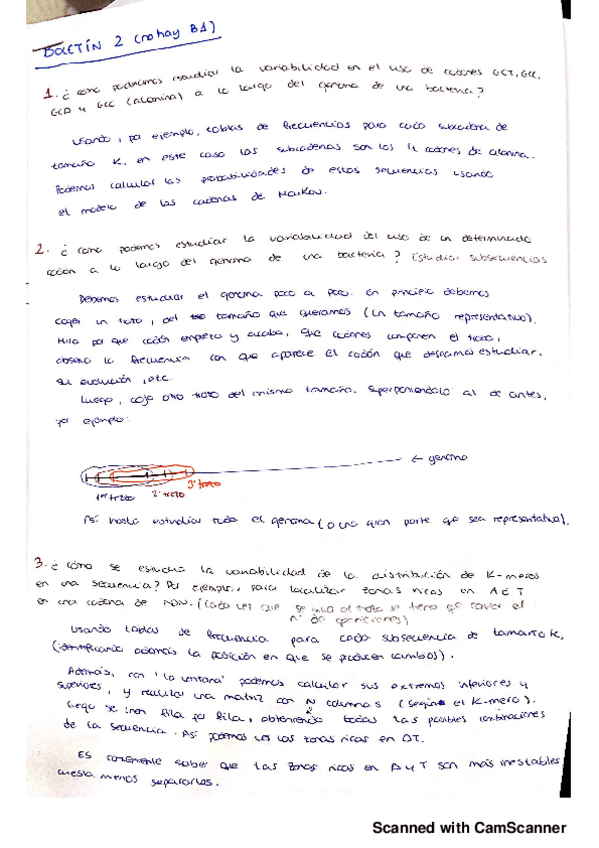 BOLETÍN 2 (no hay B1)
1. ¿cómo podríamos estudiar la variabilidad en el uso de codones GCT, GCC,
GCA y GCC (alanina) a lo largo del genoma de una bacteria?
Usando, por ejemplo, tablas de frecuencias para cada subcadena de
tamaño K, en este caso las subcadenas son los 4 codones de alanina.
Podemos calcular las probabilidades de estas secuencias usando
el modelo de las cadenas de Markov.
2. ¿cómo podemos estudiar la variabilidad del uso de un determinado
codón a lo largo del genoma de una bacteria? Estudiar subsecuencias
Debemos estudiar el genoma poco a poco. En principio debemos
coger un trozo, del tamaño que queramos (un tamaño representativo).
Miro por que codón empieza y acaba, que codones componen el trozo,
observo la frecuencia con que aparece el codón que deseamos estudiar,
su evolución, etc.
Luego, cojo otro trozo del mismo tamaño. Superponiéndolo al de antes,
por ejemplo:
← genoma
1er trozo 2º trozo 3º trozo
Así hasta estudiar todo el genoma (o una gran parte que sea representativa).
3. ¿cómo se estudia la variabilidad de la distribución de K-meros
en una secuencia? Por ejemplo, para localizar zonas ricas en A y T
en una cadena de ADN. (cada vez que se el trozo se tiene que el
nº de apariciones)
Usando tablas de frecuencia para cada subsecuencia de tamaño K,
(identificando además la posición en que se producen cambios).
Además, con 'la ventana' podemos calcular sus extremos inferiores y
superiores, y realizar una matriz con N columnas (según el K-mero).
Luego se leen fila por fila, obteniendo todas las posibles combinaciones
de la secuencia. Así podemos ver las zonas ricas en AT.
Es conveniente saber que las zonas ricas en A y T son más inestables
cuesta menos separarlas.
Scanned with CamScanner